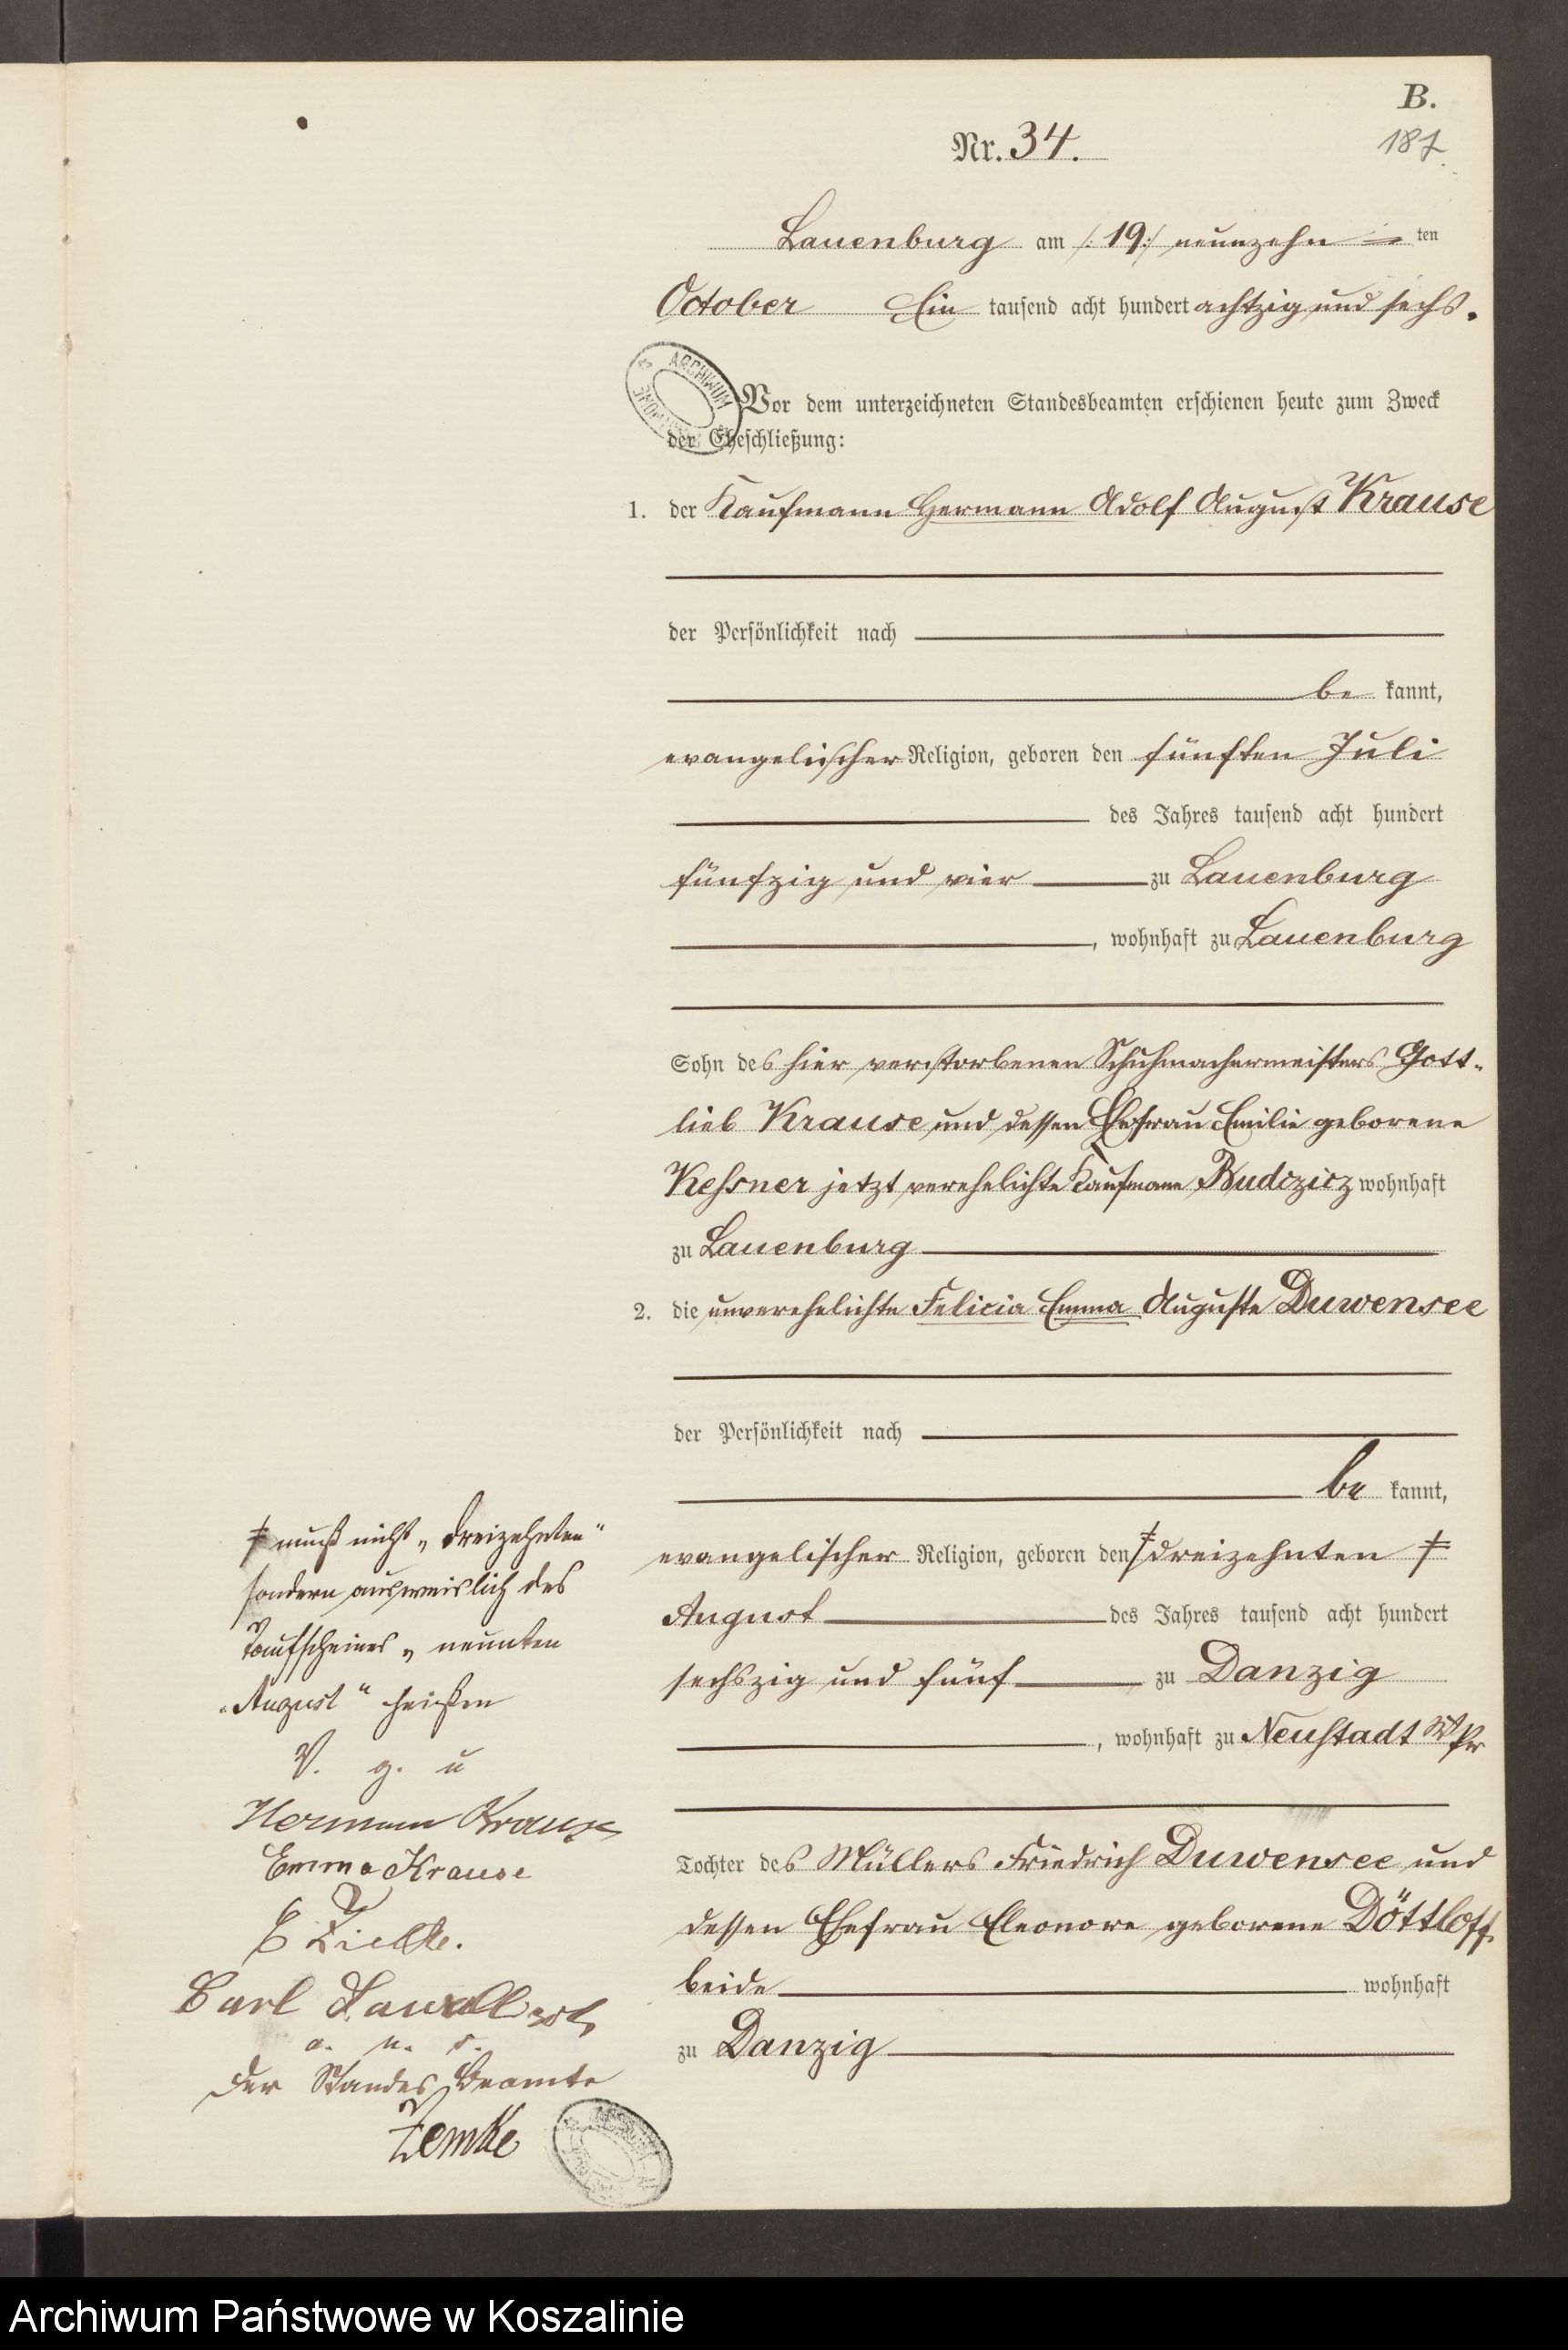 B.
187
Nr. 34.
Lauenburg am /:19:/ neunzehn ten
October Ein tausend acht hundert achtzig und sechs.
ARCHIWUM
Vor dem unterzeichneten Standesbeamten erschienen heute zum Zweck
der Eheschließung:
1. der Kaufmann Hermann Adolf August Krause
der Persönlichkeit nach
be kannt,
evangelischer Religion, geboren den fünften Juli
des Jahres tausend acht hundert
fünfzig und vier zu Lauenburg
, wohnhaft zu Lauenburg
Sohn des hier verstorbenen Schuhmachermeisters Gott-
lieb Krause und dessen Ehefrau Emilie geborene
Kessner jetzt verehelichte Kaufmann Budczicz wohnhaft
zu Lauenburg
2. die unverehelichte Felicia Emma Auguste Duwensee
der Persönlichkeit nach
be kannt,
evangelischer Religion, geboren den dreizehnten
August des Jahres tausend acht hundert
sechszig und fünf zu Danzig
, wohnhaft zu Neustadt WPr
Tochter des Müllers Friedrich Duwensee und
dessen Ehefrau Eleonore geborene Döttloff
beide wohnhaft
zu Danzig
muß nicht „dreizehnten“
sondern ausweislich des
Taufscheines „neunten
August“ heißen
V. g. u
Hermann Krause
Emma Krause
Carl
Der Standes Beamte
Zemke
Archiwum Państwowe w Koszalinie